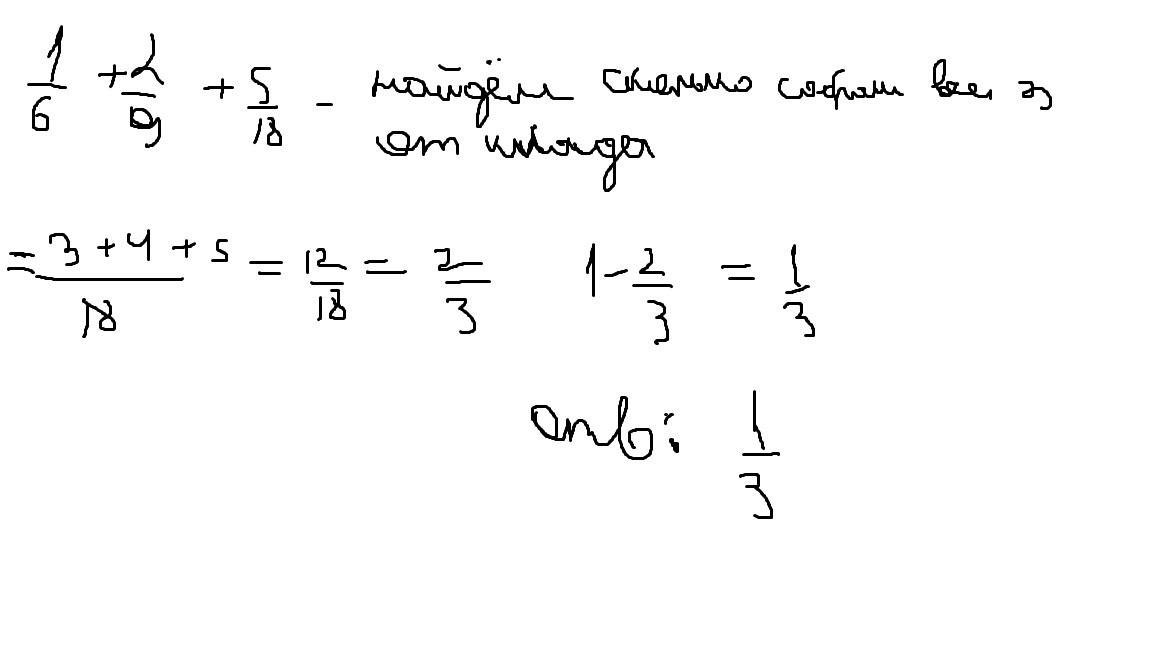 1/6 + 2/9 + 5/18 - найдём сколько собрали все 3
от клада
= (3 + 4 + 5)/18 = 12/18 = 2/3 1 - 2/3 = 1/3
отв: 1/3